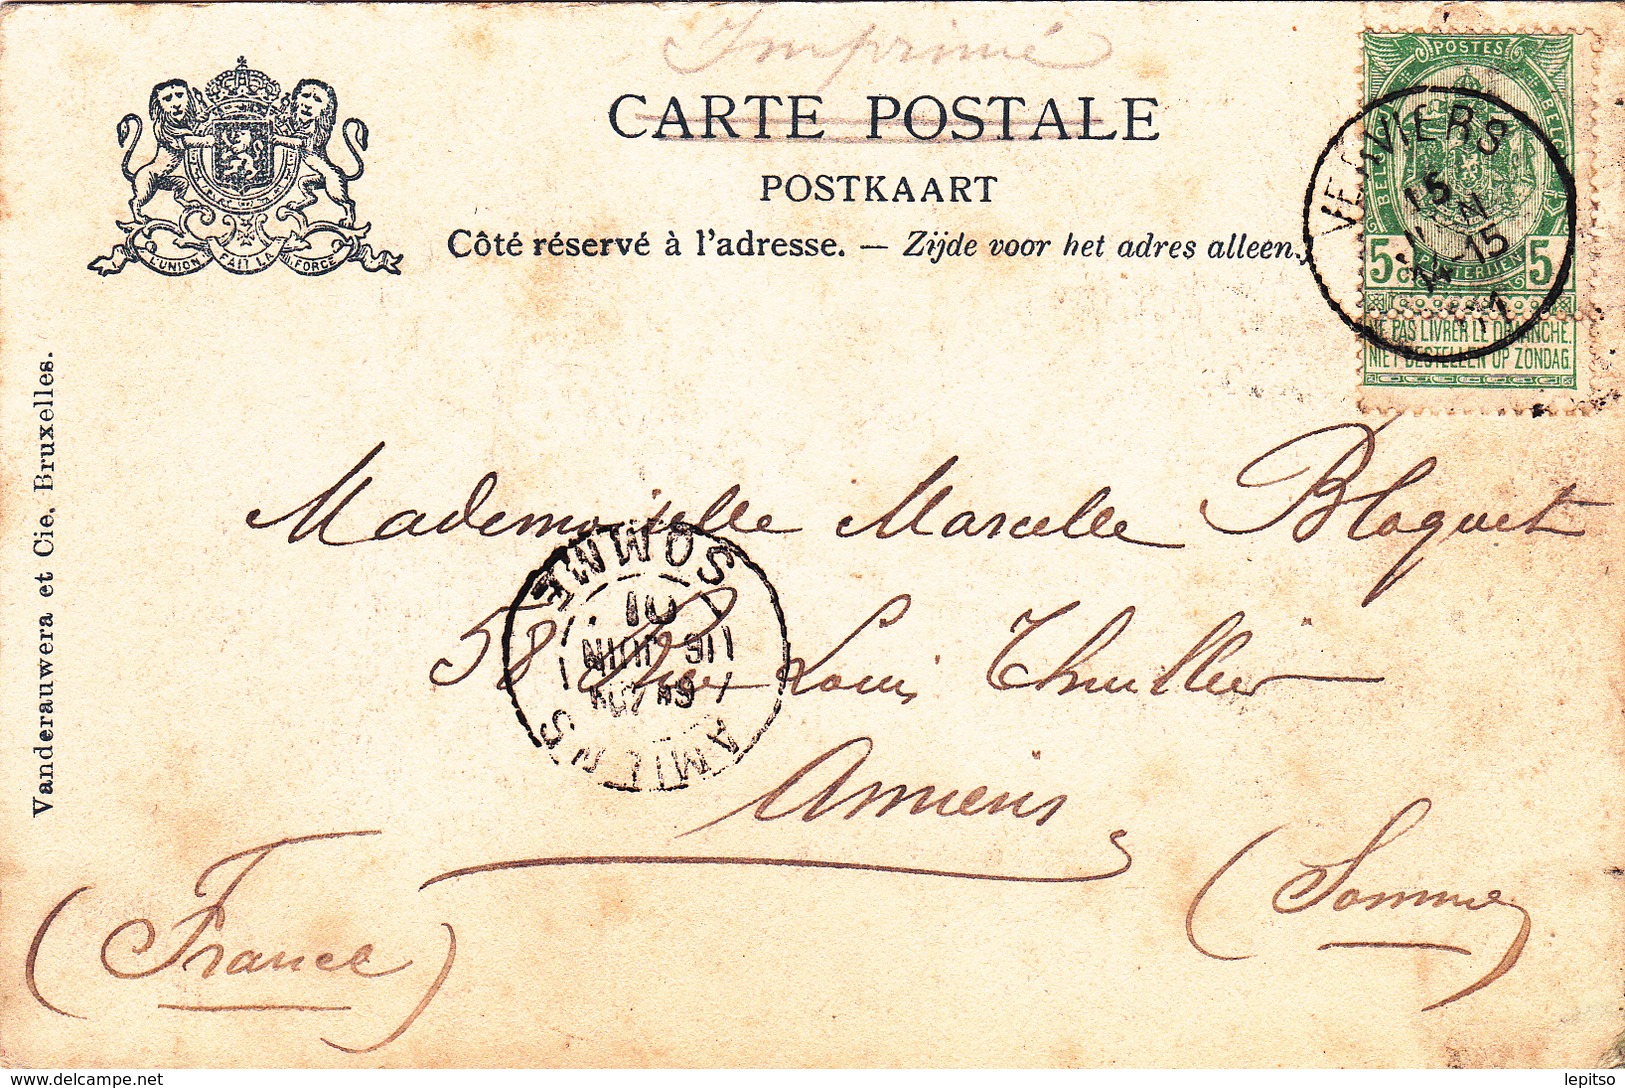 Imprimé
CARTE POSTALE
POSTKAART
Côté réservé à l'adresse. — Zijde voor het adres alleen.
L'UNION FAIT LA FORCE
POSTES
BELGIQUE BELGIË
5 c 5
POSTERIJEN
NE PAS LIVRER LE DIMANCHE.
NIET BESTELLEN OP ZONDAG.
VERVIERS
15
15
Vanderauwera et Cie, Bruxelles.
Mademoiselle Marcelle Bloquet
58 Rue Louis Thuillier
Amiens
(Somme)
(France)
AMIENS
SOMME
JUIN
01
lepitso